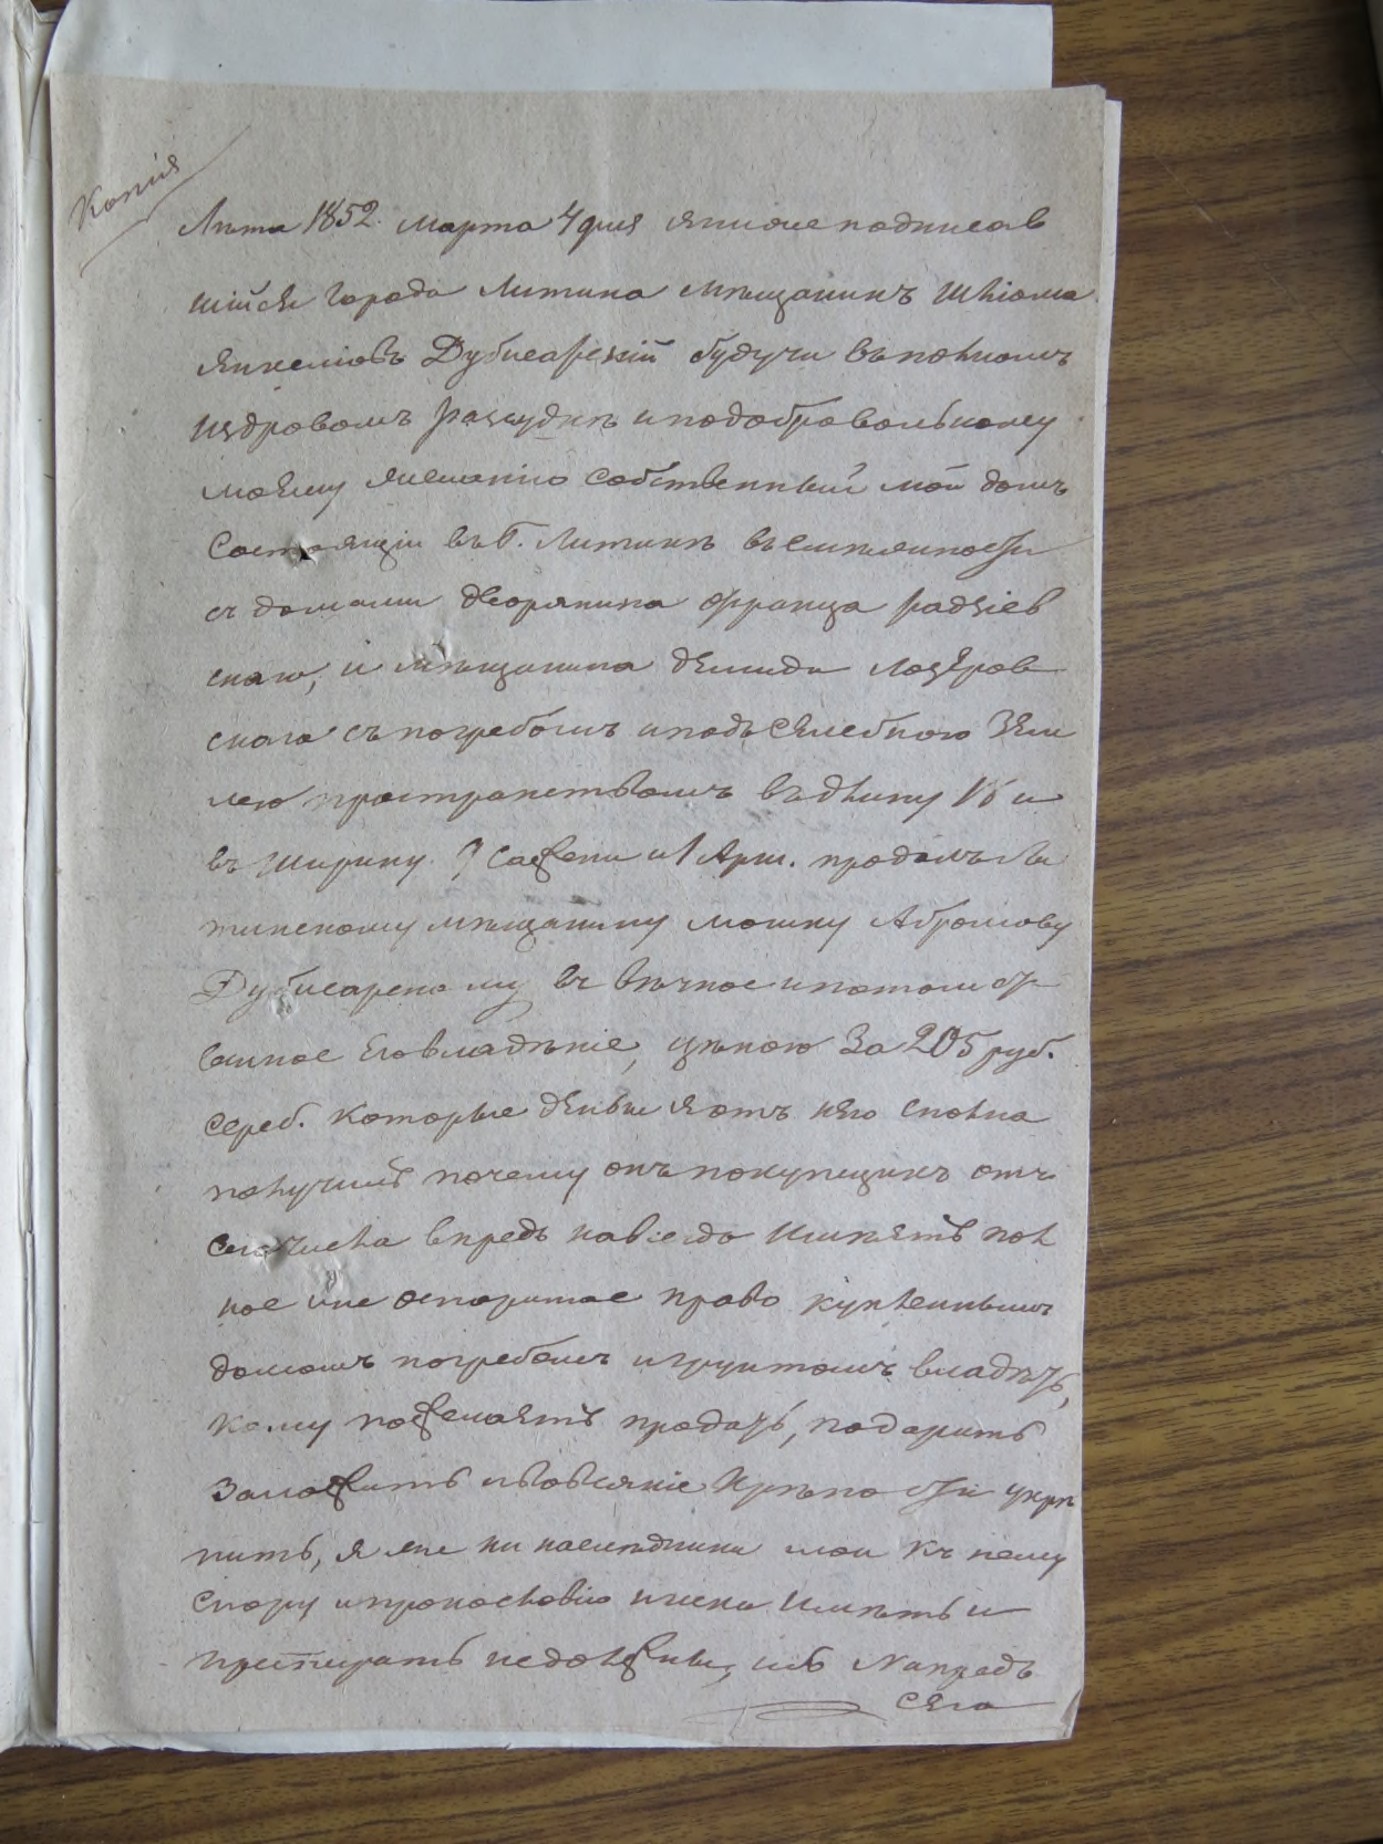 Копія
Лѣта 1852. Марта 4 дня я ниже подписав
шійся Города Литина мѣщанинъ Шліома
Янкеліовъ Дубисарскій будучи въ полномъ
издровомъ разсудкѣ и подобровольному
моему желанію собственный мой домъ
состоящій въ Г. Литинѣ въ смѣжности
съ домами дворянина Франца Радзіев
скаго, и мѣщанина Демида Лозѣров
скаго съ погребомъ иподъ селебною Зем
лею пространствомъ въ длину 16 и
въ ширину 9 Сажени и 1 Арш. продалъ Ли
тинскому мѣщанину Мошку Абрамову
Дубисарскому въ вѣчное ипотомст
венное Его владѣніе, цѣною За 205 руб.
сереб. которые деньги я отъ него сполна
получилъ почему онъ покупщикъ отъ
сего числа впредь навсегда имѣетъ пол
ное ине оспоримое право купленнымъ
домомъ погребомъ игрунтомъ владѣть,
кому пожелаетъ продать, подарить
Заложить ивовсякіе Крѣпости укрѣ
пить, я же ни наслѣдники мои къ нему
спору ипрекословію никакого имѣть и
претирать недолжны, ибо Напредь
сего